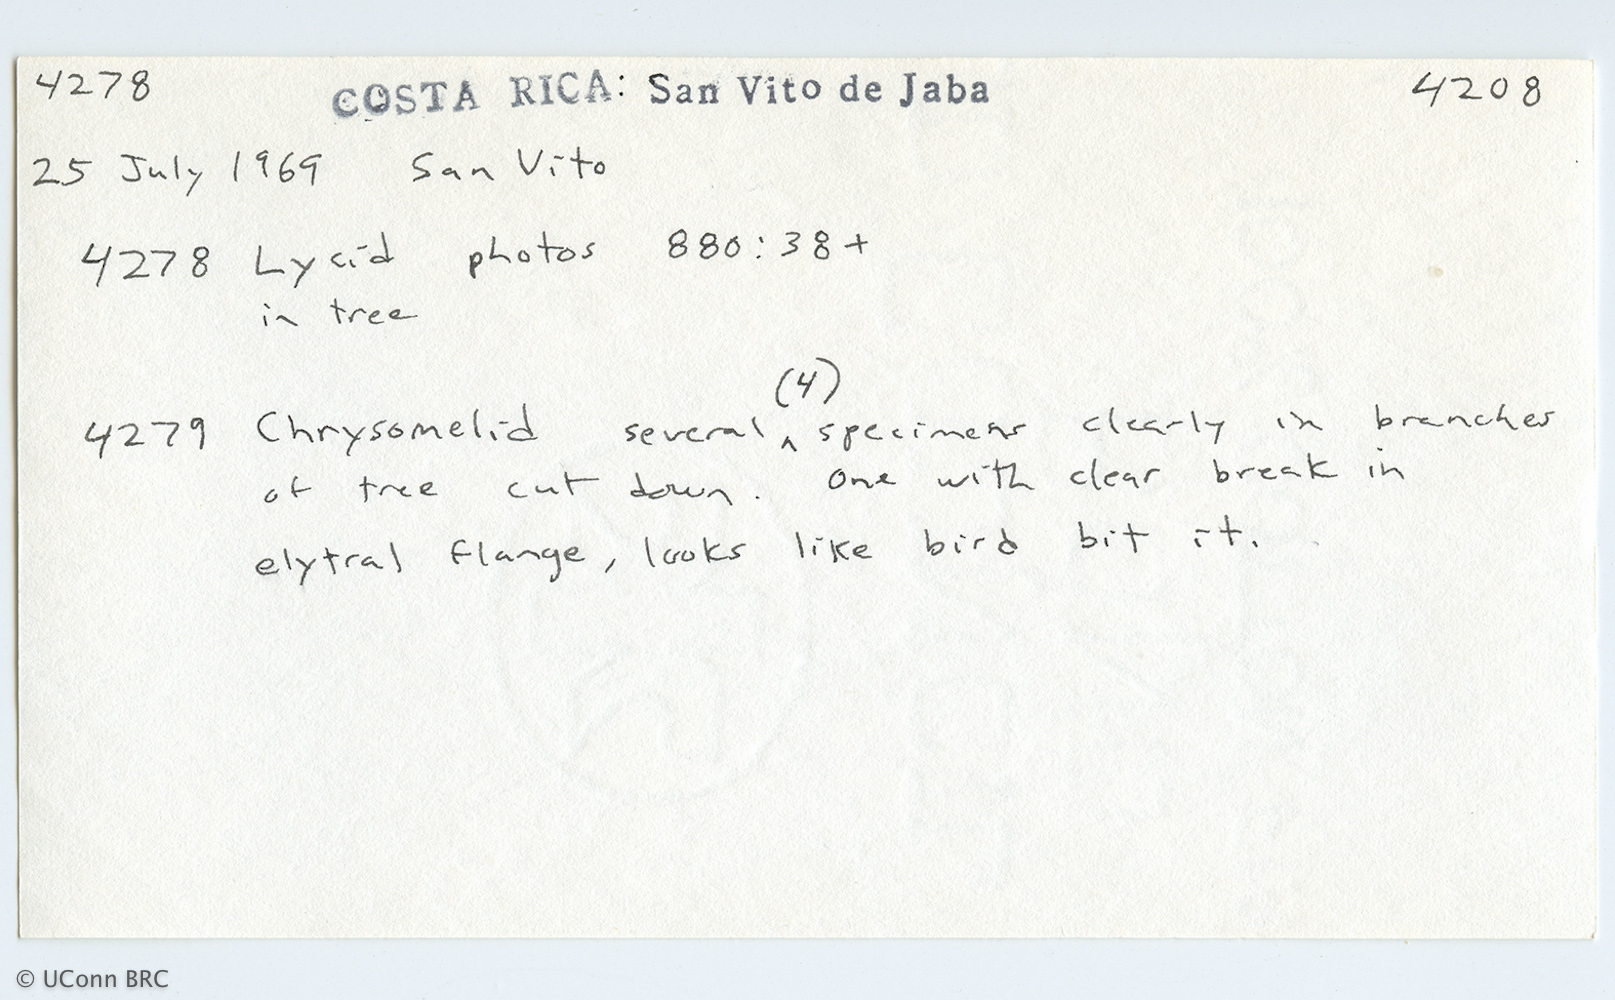 4278 COSTA RICA: San Vito de Jaba 4208
25 July 1969 San Vito
4278 Lycid photos 880:38+
in tree
(4)
4279 Chrysomelid several ^ specimens clearly in branches
of tree cut down. One with clear break in
elytral flange, looks like bird bit it.
© UConn BRC